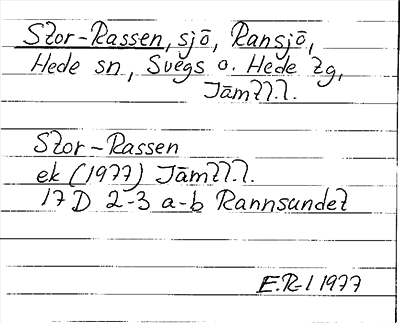 Stor-Rassen, sjö, Ransjö,
Hede sn, Svegs o. Hede tg,
Jämtl.l.
Stor-Rassen
ek (1977) Jämtl.l.
17D 2-3 a-b Rannsundet
E.R-l 1977